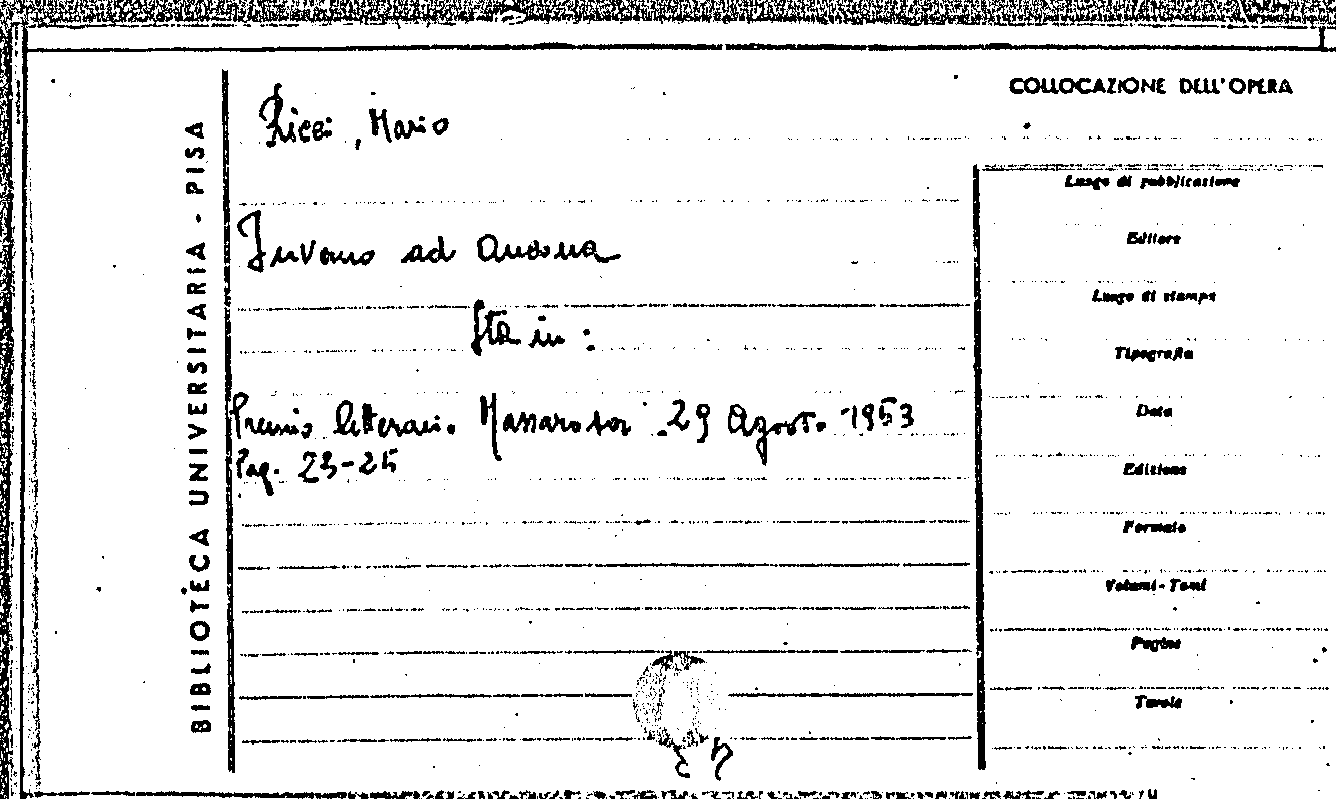 BIBLIOTECA UNIVERSITARIA - PISA
Ricci, Mario
Invano ad Ancona
Sta in:
Premio letterario Massarosa 29 Agosto 1953
Pag. 23-25
COLLOCAZIONE DELL'OPERA
Luogo di pubblicazione
Editore
Luogo di stampa
Tipografia
Data
Edizione
Formato
Volumi-Tomi
Pagine
Tavole